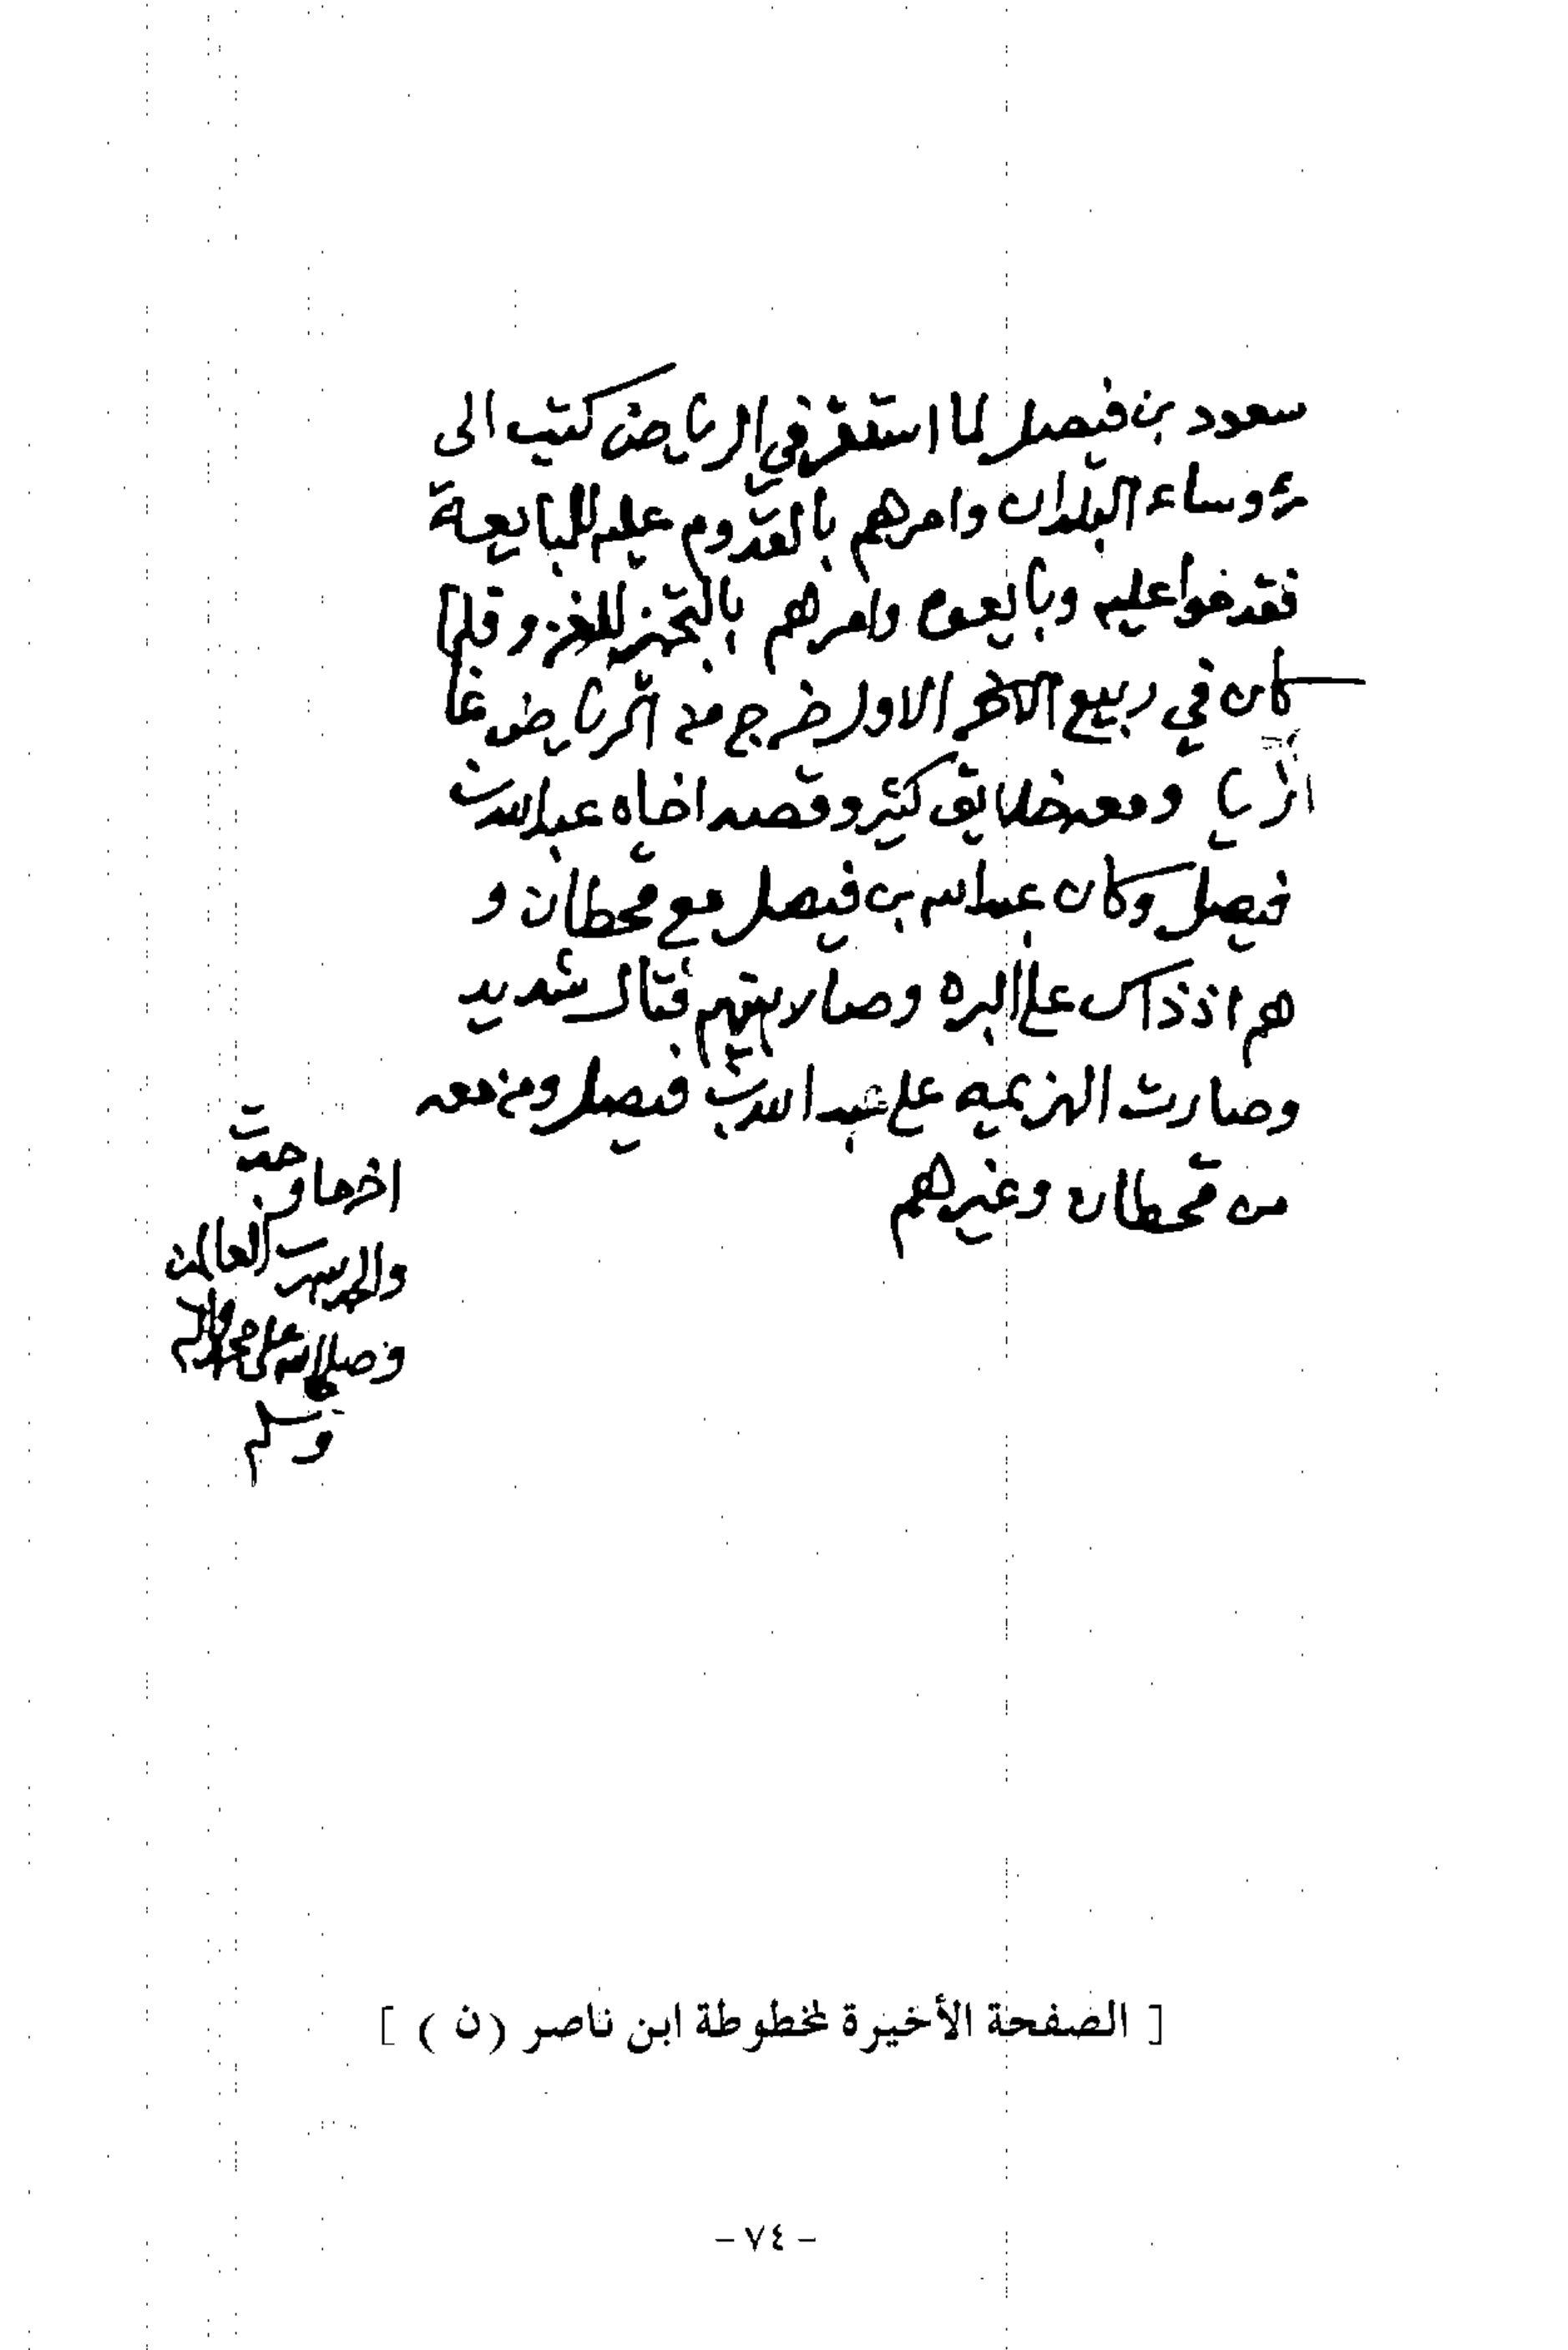 سعود بن فيصل لما استقر في الرياض كتب الى
رءوساء البلدان وامرهم بالقدوم عليه للمبايعة
فقدموا عليه وبايعوه وامرهم بالتجهز للغزو فلما
كان في ربيع الاول خرج من الرياض غا
ازيا ومعه خلايق كثير وقصد اخاه عبدالله بن
فيصل وكان عبدالله بن فيصل مع قحطان و
هم اذ ذاك على البره وصار بينهم قتال شديد
وصارت الهزيمه على عبدالله بن فيصل ومن معه
من قحطان وغيرهم
اخر ما وجدت
والحمد لله رب العالمين
وصلى الله على محمد واله
وسلم
[ الصفحة الأخيرة لمخطوطة ابن ناصر (ن) ]
– ٧٤ –